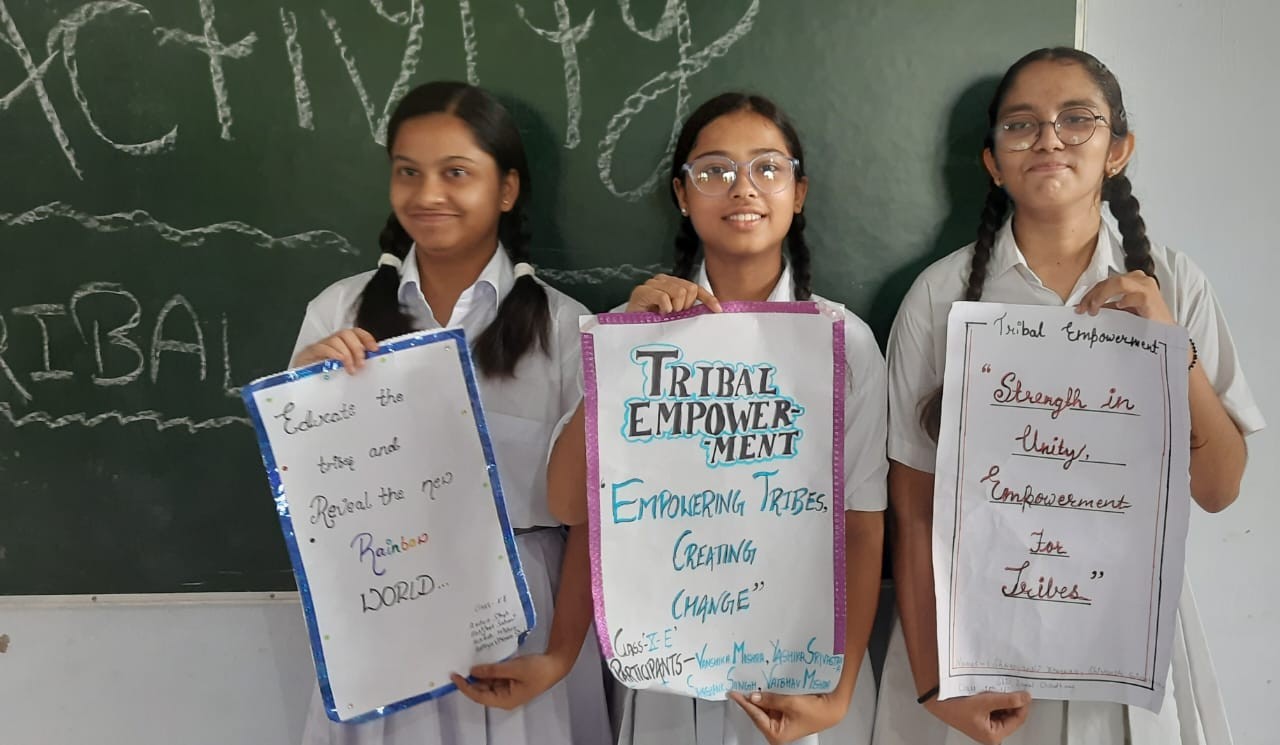 ACTIVITY
TRIBAL
Educate the
tribes and
Reveal the new
Rainbow
WORLD...
TRIBAL
EMPOWER-
-MENT
"EMPOWERING TRIBES,
CREATING
CHANGE"
CLASS 'X-E'
PARTICIPANTS - VANSHIKA MISHRA, YASHIKA SRIVASTAV
SINGH, VAIBHAV MISHRA
Tribal Empowerment
"Strength in
Unity,
Empowerment
For
Tribes"